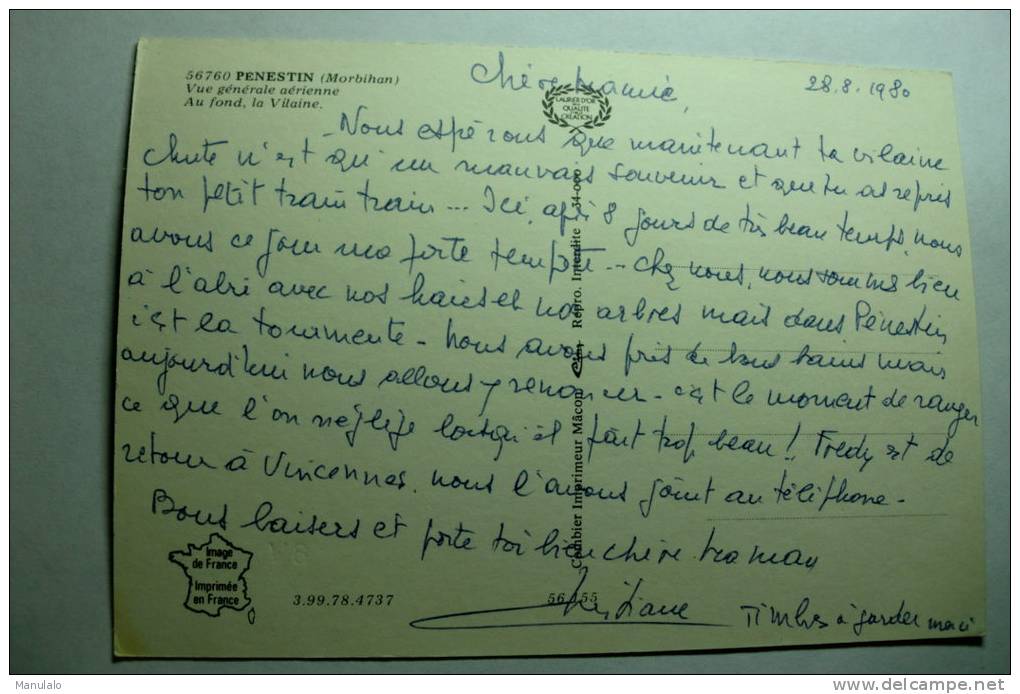 56760 PENESTIN (Morbihan)
Vue générale aérienne
Au fond, la Vilaine.
LAURIER D'OR
DE LA
QUALITÉ
CRÉATION
Chère Mamie,
28.8.1980
Nous espérons que maintenant ta vilaine
chute n'est qu'un mauvais souvenir et que tu as repris
ton petit train train... Ici, après 8 jours de très beau temps, nous
avons ce jour une forte tempête... Chez nous, nous sommes bien
à l'abri avec nos haies et nos arbres mais dans Pénestin
c'est la tourmente - Nous avons pris de bons bains mais
aujourd'hui nous allons y renoncer - c'est le moment de ranger
ce que l'on néglige lorsqu'il fait trop beau! Fredy est de
retour à Vincennes, nous l'avons joint au téléphone -
Bons baisers et porte toi bien chère maman
Timbres à garder merci
Combier Imprimeur Mâcon Cim Repro. Interdite 34-000
Image
de France
Imprimée
en France
3.99.78.4737
56 155
Manulalo
www.delcampe.net